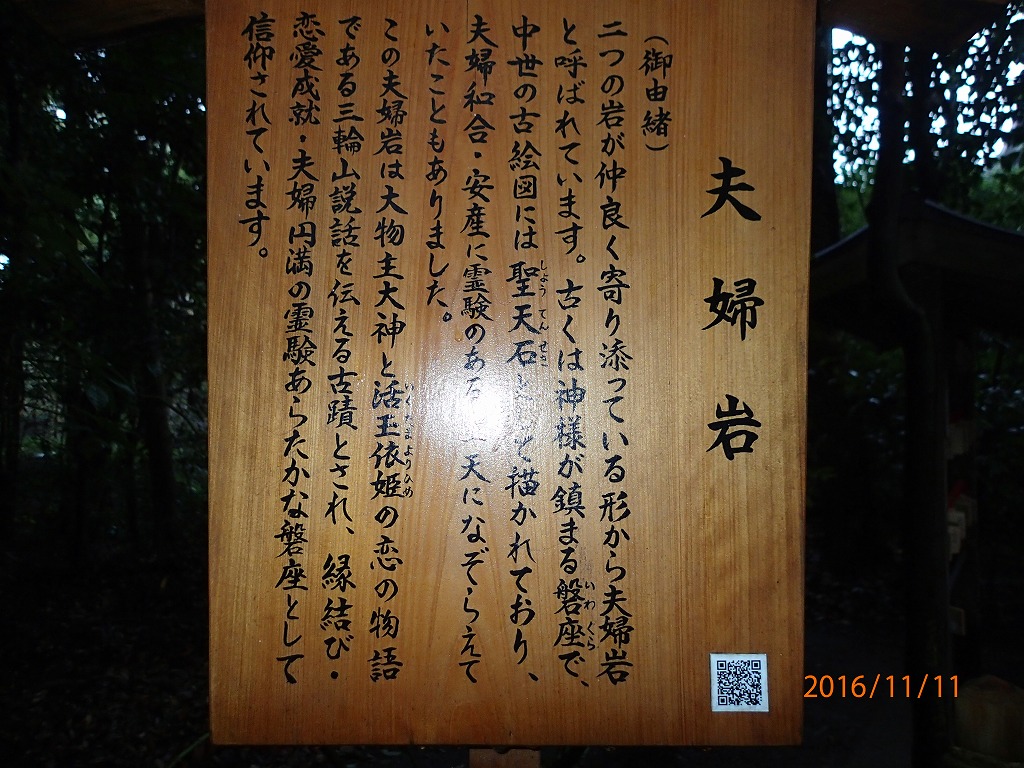 夫婦岩
(御由緒)
二つの岩が仲良く寄り添っている形から夫婦岩
と呼ばれています。古くは神様が鎮まる磐座で、
いわくら
中世の古絵図には聖天石と て描かれており、
しょうてんせき
夫婦和合・安産に霊験のある 天になぞらえて
いたこともありました。
この夫婦岩は大物主大神と活玉依姫の恋の物語
いくたまよりひめ
である三輪山説話を伝える古蹟とされ、縁結び・
恋愛成就・夫婦円満の霊験あらたかな磐座として
信仰されています。
2016/11/11